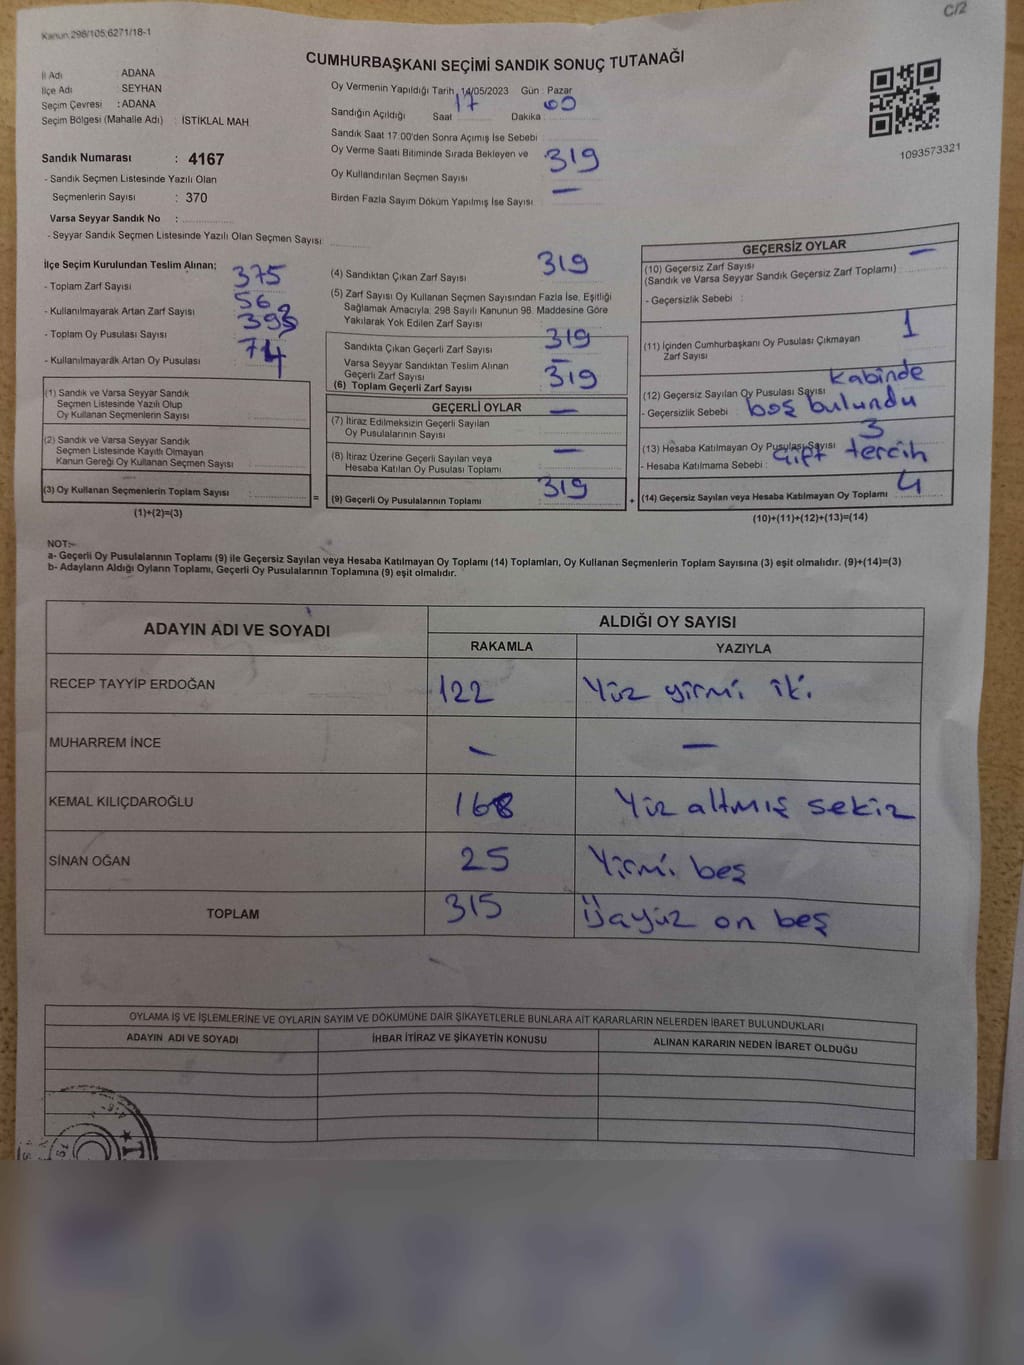 C/2
Kanun 298/105,6271/18-1
CUMHURBAŞKANI SEÇİMİ SANDIK SONUÇ TUTANAĞI
İl Adı : ADANA
İlçe Adı : SEYHAN
Seçim Çevresi : ADANA
Seçim Bölgesi (Mahalle Adı) : İSTİKLAL MAH
Sandık Numarası : 4167
- Sandık Seçmen Listesinde Yazılı Olan
Seçmenlerin Sayısı : 370
Varsa Seyyar Sandık No :
- Seyyar Sandık Seçmen Listesinde Yazılı Olan Seçmen Sayısı:
Oy Vermenin Yapıldığı Tarih 14/05/2023 Gün : Pazar
Sandığın Açıldığı Saat 17 Dakika 00
Sandık Saat 17:00'den Sonra Açılmış İse Sebebi :
Oy Verme Saati Bitiminde Sırada Bekleyen ve
Oy Kullandırılan Seçmen Sayısı 319
Birden Fazla Sayım Döküm Yapılmış İse Sayısı —
1093573321
İlçe Seçim Kurulundan Teslim Alınan;
- Toplam Zarf Sayısı : 375
- Kullanılmayarak Artan Zarf Sayısı : 56
- Toplam Oy Pusulası Sayısı : 393
- Kullanılmayarak Artan Oy Pusulası : 74
(1) Sandık ve Varsa Seyyar Sandık
Seçmen Listesinde Yazılı Olup
Oy Kullanan Seçmenlerin Sayısı :
(2) Sandık ve Varsa Seyyar Sandık
Seçmen Listesinde Kayıtlı Olmayan
Kanun Gereği Oy Kullanan Seçmen Sayısı :
(3) Oy Kullanan Seçmenlerin Toplam Sayısı :
(1)+(2)=(3)
=
(4) Sandıktan Çıkan Zarf Sayısı 319
(5) Zarf Sayısı Oy Kullanan Seçmen Sayısından Fazla İse, Eşitliği
Sağlamak Amacıyla, 298 Sayılı Kanunun 98. Maddesine Göre
Yakılarak Yok Edilen Zarf Sayısı :
Sandıkta Çıkan Geçerli Zarf Sayısı 319
Varsa Seyyar Sandıktan Teslim Alınan
Geçerli Zarf Sayısı —
(6) Toplam Geçerli Zarf Sayısı 319
GEÇERLİ OYLAR
(7) İtiraz Edilmeksizin Geçerli Sayılan
Oy Pusulalarının Sayısı —
(8) İtiraz Üzerine Geçerli Sayılan veya
Hesaba Katılan Oy Pusulası Toplamı —
(9) Geçerli Oy Pusulalarının Toplamı 319
+
GEÇERSİZ OYLAR
(10) Geçersiz Zarf Sayısı —
(Sandık ve Varsa Seyyar Sandık Geçersiz Zarf Toplamı)
- Geçersizlik Sebebi :
(11) İçinden Cumhurbaşkanı Oy Pusulası Çıkmayan
Zarf Sayısı 1
(12) Geçersiz Sayılan Oy Pusulası Sayısı kabinde
- Geçersizlik Sebebi boş bulundu
(13) Hesaba Katılmayan Oy Pusulası Sayısı 3
- Hesaba Katılmama Sebebi : Çift tercih
(14) Geçersiz Sayılan veya Hesaba Katılmayan Oy Toplamı 4
(10)+(11)+(12)+(13)=(14)
NOT:-
a- Geçerli Oy Pusulalarının Toplamı (9) ile Geçersiz Sayılan veya Hesaba Katılmayan Oy Toplamı (14) Toplamları, Oy Kullanan Seçmenlerin Toplam Sayısına (3) eşit olmalıdır. (9)+(14)=(3)
b- Adayların Aldığı Oyların Toplamı, Geçerli Oy Pusulalarının Toplamına (9) eşit olmalıdır.
ADAYIN ADI VE SOYADI
ALDIĞI OY SAYISI
RAKAMLA YAZIYLA
RECEP TAYYİP ERDOĞAN 122 Yüz yirmi iki
MUHARREM İNCE — —
KEMAL KILIÇDAROĞLU 168 Yüz altmış sekiz
SİNAN OĞAN 25 Yirmi beş
TOPLAM 315 Üçyüz on beş
OYLAMA İŞ VE İŞLEMLERİNE VE OYLARIN SAYIM VE DÖKÜMÜNE DAİR ŞİKAYETLERLE BUNLARA AİT KARARLARIN NELERDEN İBARET BULUNDUKLARI
ADAYIN ADI VE SOYADI İHBAR İTİRAZ VE ŞİKAYETİN KONUSU ALINAN KARARIN NEDEN İBARET OLDUĞU